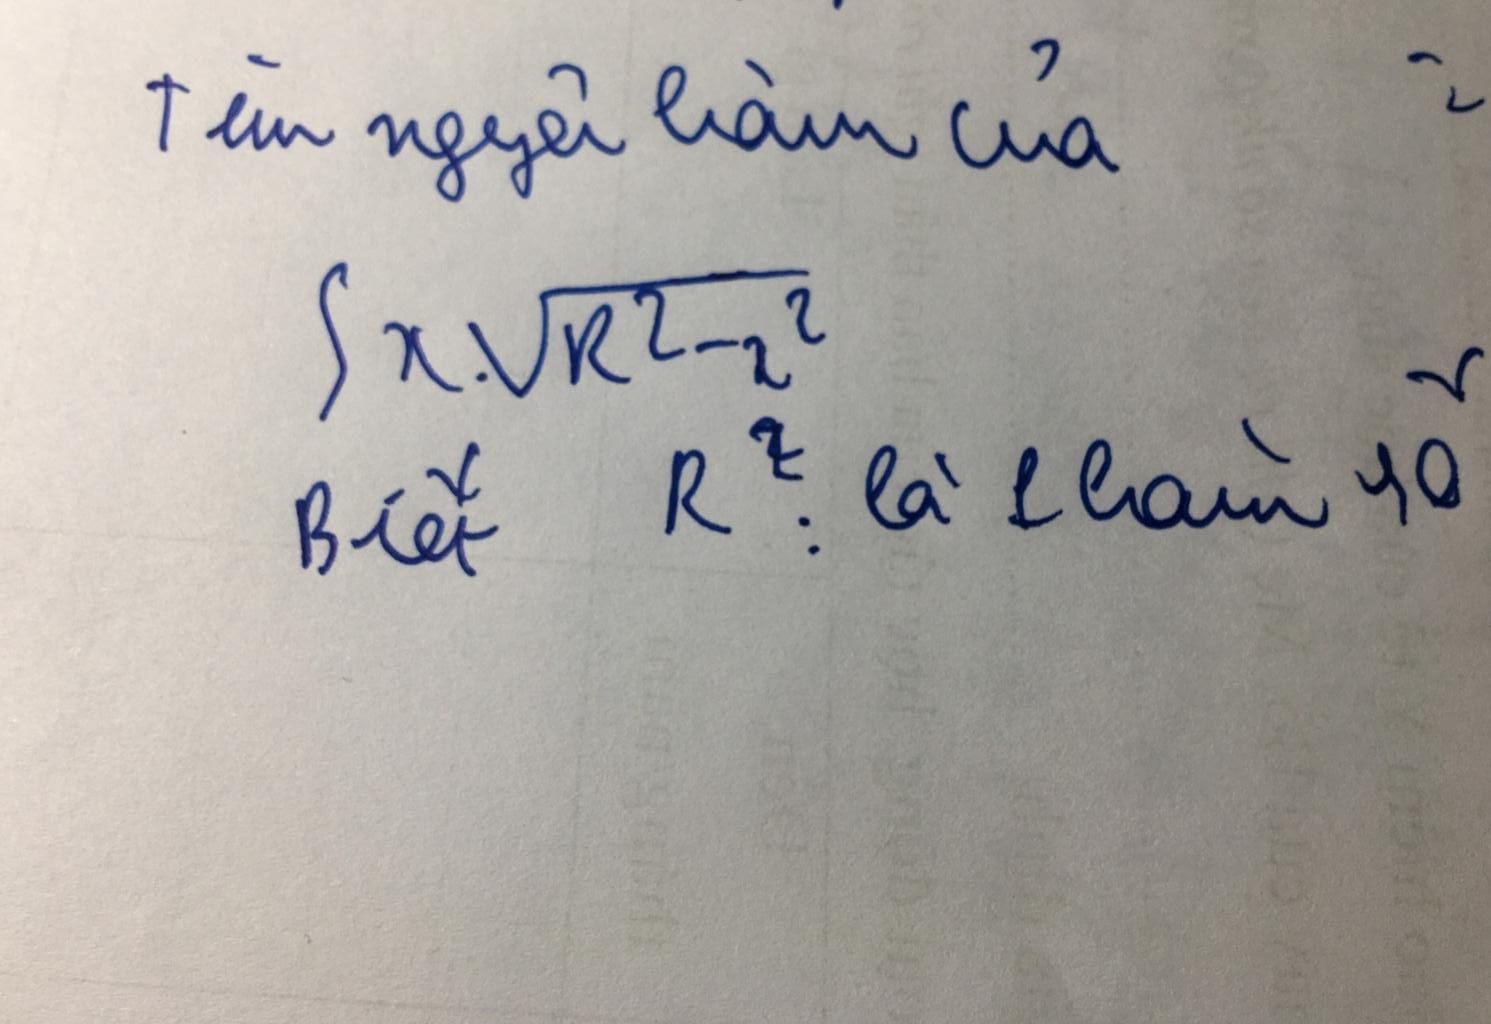 Tìm nguyên hàm của
∫ x.√R²-x²
Biết R²: là 1 hàm số